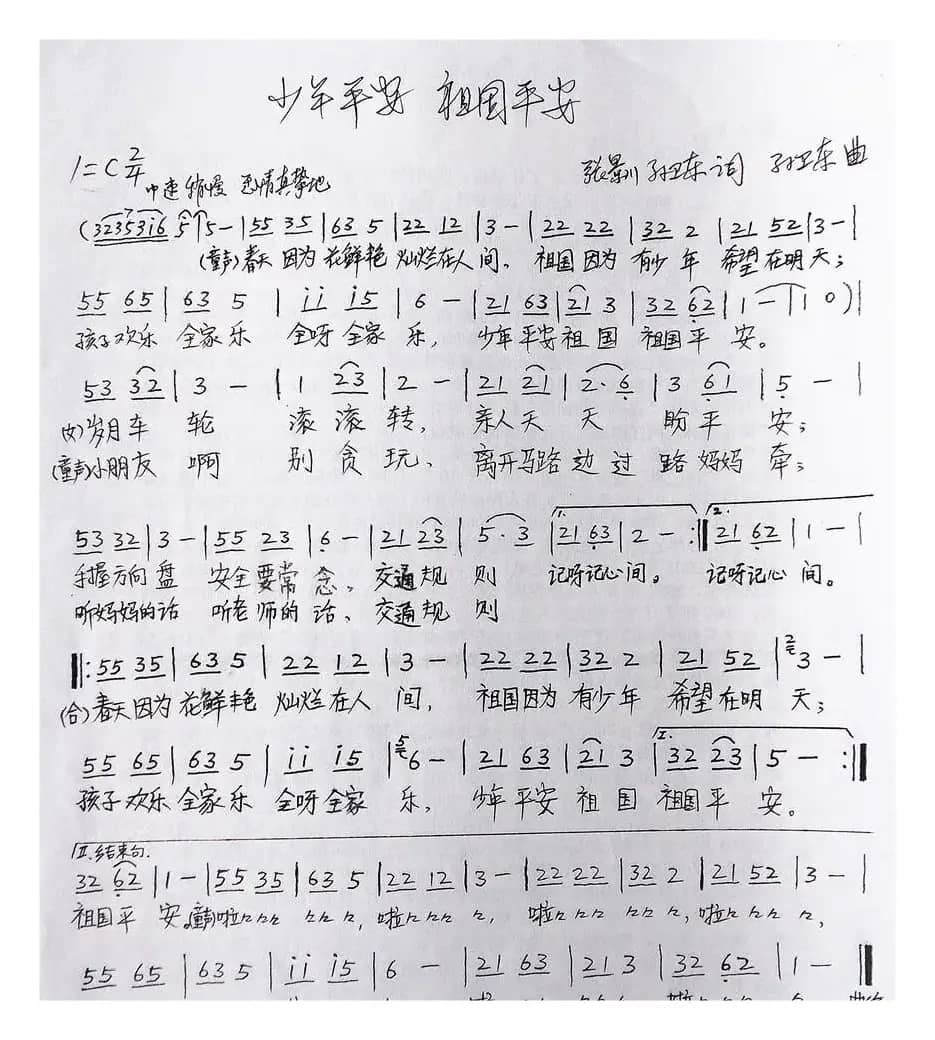 少年平安 祖国平安
1=C 2/4 中速稍慢 热情真挚地 张景川 孙卫东词 孙卫东曲
(3235 3i6 5 | 5 - | 55 35 | 63 5 | 22 12 | 3 - | 22 22 | 32 2 | 21 52 | 3 - |
(童声)春天因为花鲜艳 灿烂在人间, 祖国因为有少年 希望在明天;
55 65 | 63 5 | ii i5 | 6 - | 21 63 | 21 3 | 32 62 | 1 - | 1 0) |
孩子欢乐 全家乐 全呀全家乐, 少年平安祖国 祖国平安。
53 32 | 3 - | 1 23 | 2 - | 21 21 | 2· 6 | 3 61 | 5 - |
(女)岁月车轮 滚滚转, 亲人天天 盼平安;
(童声)小朋友啊 别贪玩, 离开马路边过路妈妈牵;
53 32 | 3 - | 55 23 | 6 - | 21 23 | 5· 3 | 1. 21 63 | 2 - :‖ 2. 21 62 | 1 - |
手握方向盘 安全要常念, 交通规则 记呀记心间。 记呀记心间。
听妈妈的话 听老师的话, 交通规则
‖: 55 35 | 63 5 | 22 12 | 3 - | 22 22 | 32 2 | 21 52 | 2 3 - |
(合)春天因为花鲜艳 灿烂在人间, 祖国因为有少年 希望在明天;
55 65 | 63 5 | ii i5 | 5 6 - | 21 63 | 21 3 | I. 32 23 | 5 - :‖
孩子欢乐全家乐 全呀全家乐, 少年平安祖国 祖国平安。
II.结束句.
32 62 | 1 - | 55 35 | 63 5 | 22 12 | 3 - | 22 22 | 32 2 | 21 52 | 3 - |
祖国平安。(童声)啦々々々 々々々, 啦々々々々, 啦々々々 々々々, 啦々々々々,
55 65 | 63 5 | ii i5 | 6 - | 21 63 | 21 3 | 32 62 | 1 - ‖